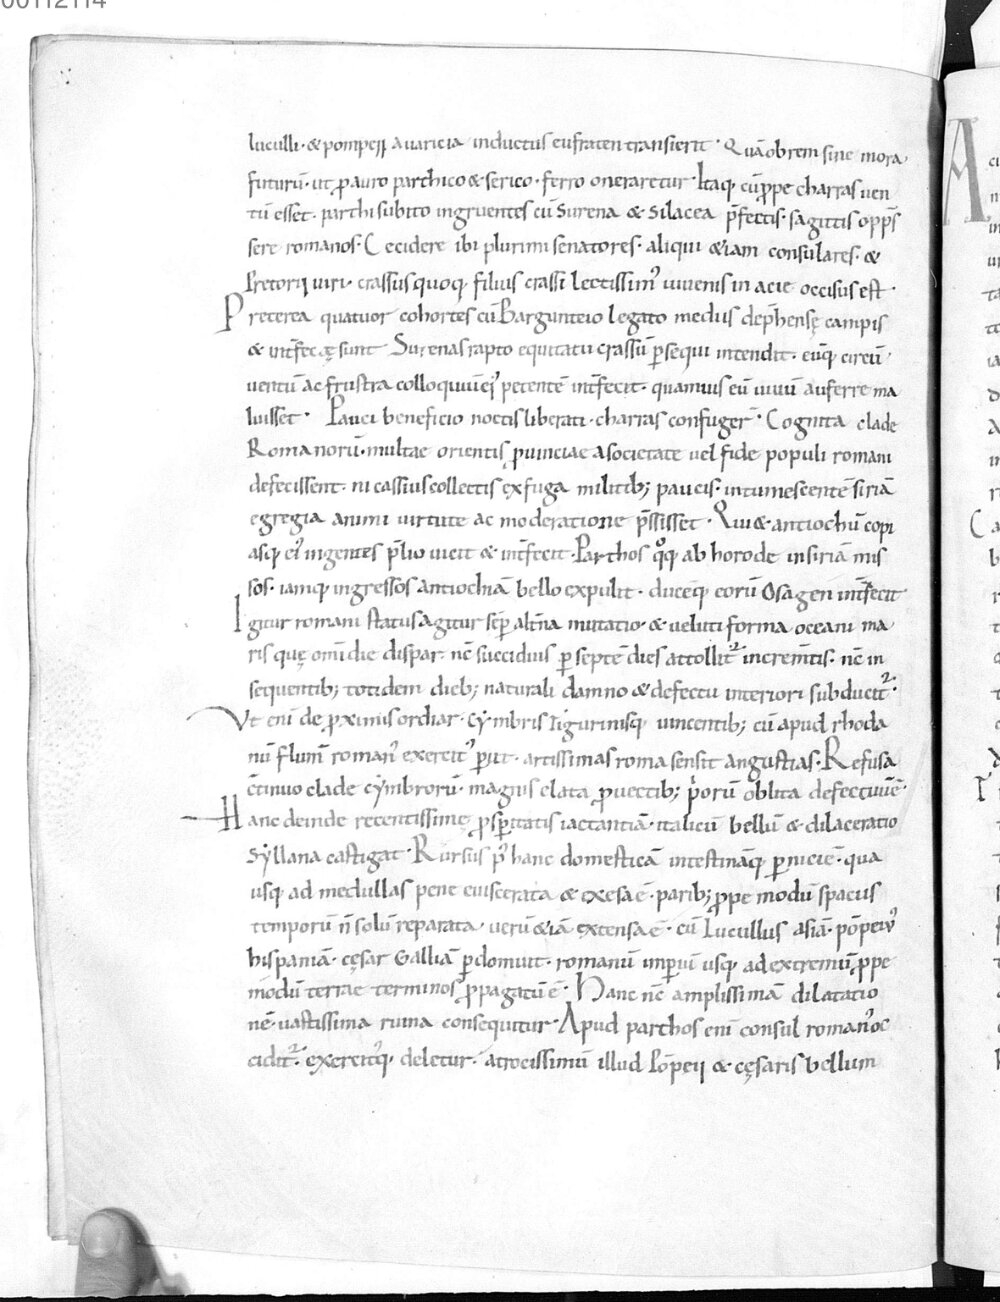 00112114
luculli · & pompeii avaricia inductus eufraten transierit · Quāobrem sine mora
futurū · ut p auro parthico & serico · ferro oneraretur · Itaq; cū ppe charras ven
tū esset · parthi subito ingruentes cū Surena & Silacea p̄fectis · sagittis opp̄s
sere romanos · Cecidere ibi plurimi senatores · aliqui &iam consulares · &
Pretorii viri · crassus quoq; filius crassi lectissim᷒ iuvenis in acie occisus est ·
Preterea quatuor cohortes cū Bargunteio legato medus dep̄hensę campis
& int̄fectę sunt Surenas rapto equitatu crassū p̱sequi intendit · eūq; circū
ventū ac frustra colloquiū ei᷒ petentē int̄fecit · quamuis eū vivū auferre ma
luisset · Pauci beneficio noctis liberati · charras confuger̄ · Cognita clade
Romanorū · multae orientis p̱vinciae a societate vel fide populi romani
defecissent · ni cassius collectis ex fuga militib; paucis · intumescentē siriā
egregia animi virtute ac moderatione p̄ssisset · Qui & antiochū copi
asq; ei᷒ ingentes p̄lio vicit & int̄fecit · Parthos qͦq; ab horode in siriā mis
sos · iamq; ingressos antiochiā bello expulit · duceq; eorū Osagen int̄fecit
Igitur romani status agitur sēp alt̄na mutatio · & veluti forma oceani ma
ris quę omi die dispar · nc̄ succiduis p̱ septē dies attollit᷑ increm̄tis · nc̄ in
sequentib; totidem dieb; naturali damno & defectu interiori subducit᷑ ·
Vt eni de p̱ximis ordiar · cymbris tigurinisq; vincentib; cū apud rhoda
nū flum̄ roman᷒ exercit᷒ p̱iit · artissimas roma sensit angustias · Refusa
c̄tinuo clade cymbrorū · magnis elata p̱vectib; p̱orū oblita defectuū ē ·
Hanc deinde recentissimę p̱sp̱itatis iactantiā · italicū bellū & dilaceratio
Syllana castigat · Rursus p᷒ hanc domesticā intestināq; p̱niciē · qua
usq; ad medullas pene eviscerata & exesa ē · parib; p̱pe modū spaciis
temporū n̄ solū reparata · verū &iā extensa ē · cū Lucullus asiā · pōpei᷒
hispaniā · cęsar Galliā p̱domuit · romanū imp̱iū usq; ad extremū p̱pe
modū terrae terminos p̱pagatū ē · Hanc nc̄ amplissimā dilatatio
nē · vastissima ruina consequitur · Apud parthos eni consul roman᷒ oc
cidit᷑ · exercitq᷒; deletur · atrocissimū illud Pōpeii & cęsaris bellum